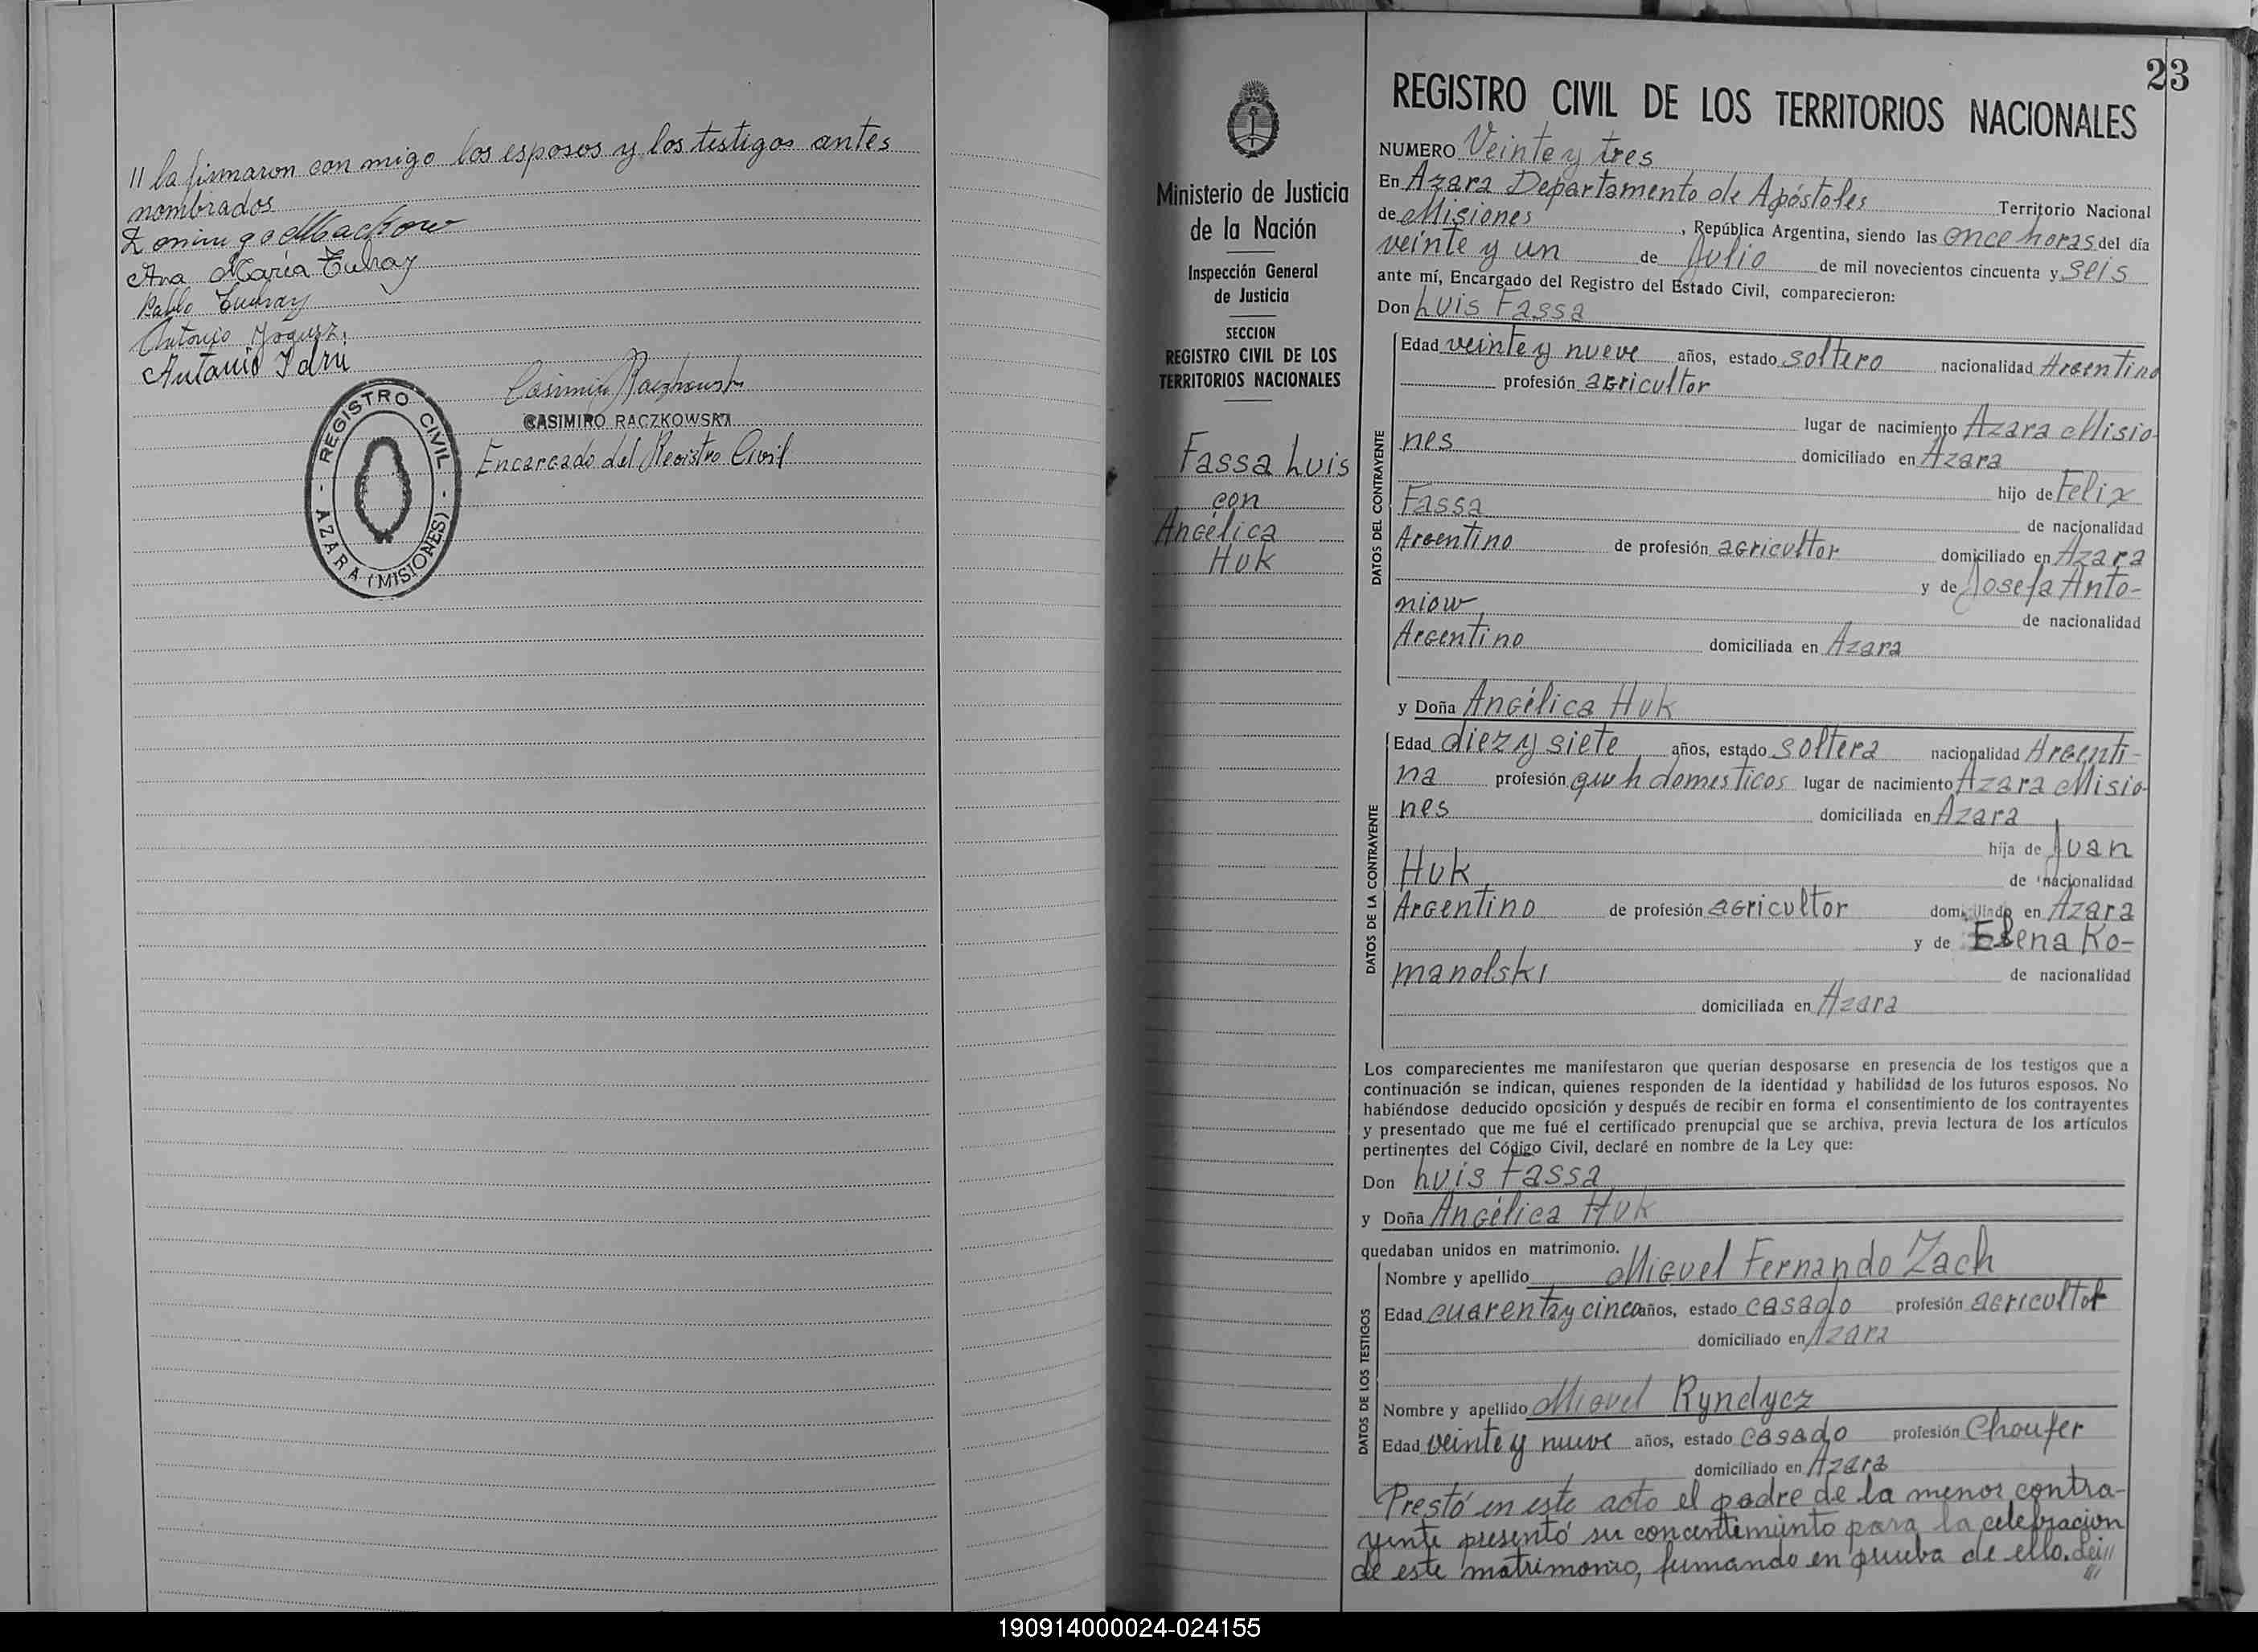 // la firmaron con migo los esposos y los testigos antes
nombrados
Domingo Machow
Ana María
Pablo
Antonio
Antonio
Casimiro Raczkowski
CASIMIRO RACZKOWSKI
Encargado del Registro Civil
REGISTRO CIVIL - AZARA (MISIONES) -
Ministerio de Justicia
de la Nación
Inspección General
de Justicia
SECCION
REGISTRO CIVIL DE LOS
TERRITORIOS NACIONALES
Fassa Luis
con
Angélica
Huk
23
REGISTRO CIVIL DE LOS TERRITORIOS NACIONALES
NUMERO Veinte y tres
En Azara Departamento de Apóstoles Territorio Nacional
de Misiones, República Argentina, siendo las once horas del día
veinte y un de Julio de mil novecientos cincuenta y seis
ante mí, Encargado del Registro del Estado Civil, comparecieron:
Don Luis Fassa
DATOS DEL CONTRAYENTE
Edad veinte y nueve años, estado soltero nacionalidad Argentino
profesión agricultor
lugar de nacimiento Azara Misio-
nes domiciliado en Azara
hijo de Felix
Fassa de nacionalidad
Argentino de profesión agricultor domiciliado en Azara
y de Josefa Anto-
niow de nacionalidad
Argentino domiciliada en Azara
y Doña Angélica Huk
DATOS DE LA CONTRAYENTE
Edad diez y siete años, estado soltera nacionalidad Argenti-
na profesión queh domesticos lugar de nacimiento Azara Misio-
nes domiciliada en Azara
hija de Juan
Huk de nacionalidad
Argentino de profesión agricultor domiciliado en Azara
y de Elena Ro-
manolski de nacionalidad
domiciliada en Azara
Los comparecientes me manifestaron que querían desposarse en presencia de los testigos que a
continuación se indican, quienes responden de la identidad y habilidad de los futuros esposos. No
habiéndose deducido oposición y después de recibir en forma el consentimiento de los contrayentes
y presentado que me fué el certificado prenupcial que se archiva, previa lectura de los artículos
pertinentes del Código Civil, declaré en nombre de la Ley que:
Don Luis Fassa
y Doña Angélica Huk
quedaban unidos en matrimonio.
DATOS DE LOS TESTIGOS
Nombre y apellido Miguel Fernando Zach
Edad cuarenta y cinco años, estado casado profesión agricultor
domiciliado en Azara
Nombre y apellido Miguel Ryndycz
Edad veinte y nueve años, estado casado profesión Choufer
domiciliado en Azara
Prestó en este acto el padre de la menor contra-
yente presentó su concentimiento para la celebracion
de este matrimonio, firmando en prueba de ello.
190914000024-024155